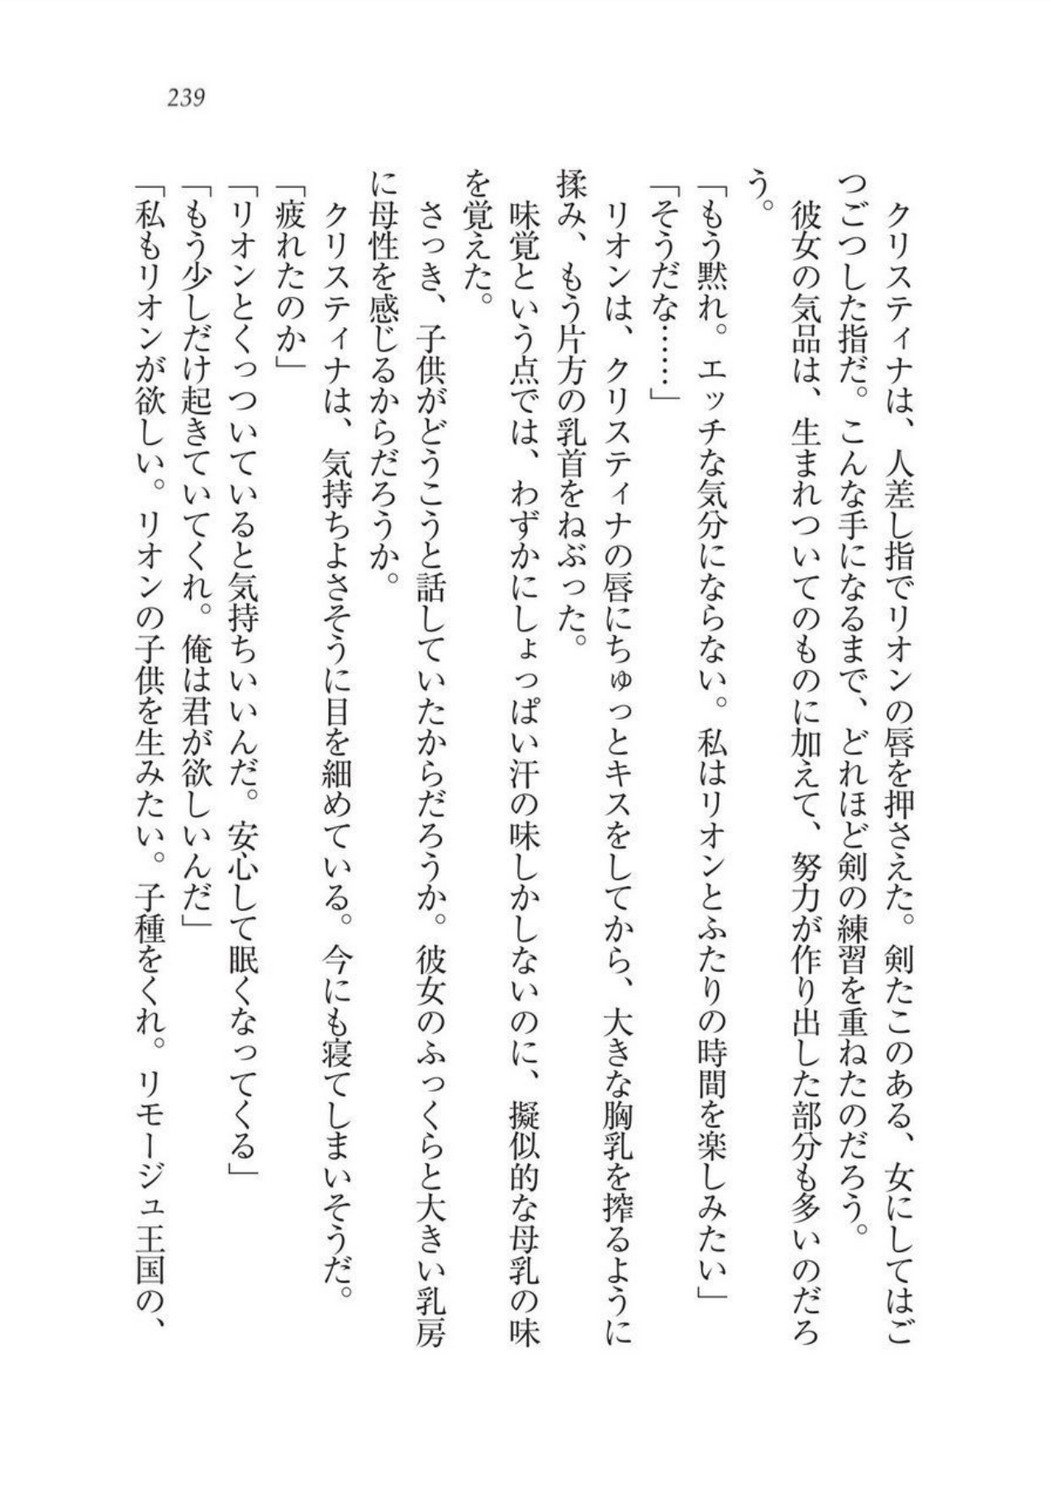 239
クリスティナは、人差し指でリオンの唇を押さえた。剣たこのある、女にしてはご
つごつした指だ。こんな手になるまで、どれほど剣の練習を重ねたのだろう。
彼女の気品は、生まれついてのものに加えて、努力が作り出した部分も多いのだろ
う。
「もう黙れ。エッチな気分にならない。私はリオンとふたりの時間を楽しみたい」
「そうだな……」
リオンは、クリスティナの唇にちゅっとキスをしてから、大きな胸乳を搾るように
揉み、もう片方の乳首をねぶった。
味覚という点では、わずかにしょっぱい汗の味しかしないのに、擬似的な母乳の味
を覚えた。
さっき、子供がどうこうと話していたからだろうか。彼女のふっくらと大きい乳房
に母性を感じるからだろうか。
クリスティナは、気持ちよさそうに目を細めている。今にも寝てしまいそうだ。
「疲れたのか」
「リオンとくっついていると気持ちいいんだ。安心して眠くなってくる」
「もう少しだけ起きていてくれ。俺は君が欲しいんだ」
「私もリオンが欲しい。リオンの子供を生みたい。子種をくれ。リモージュ王国の、